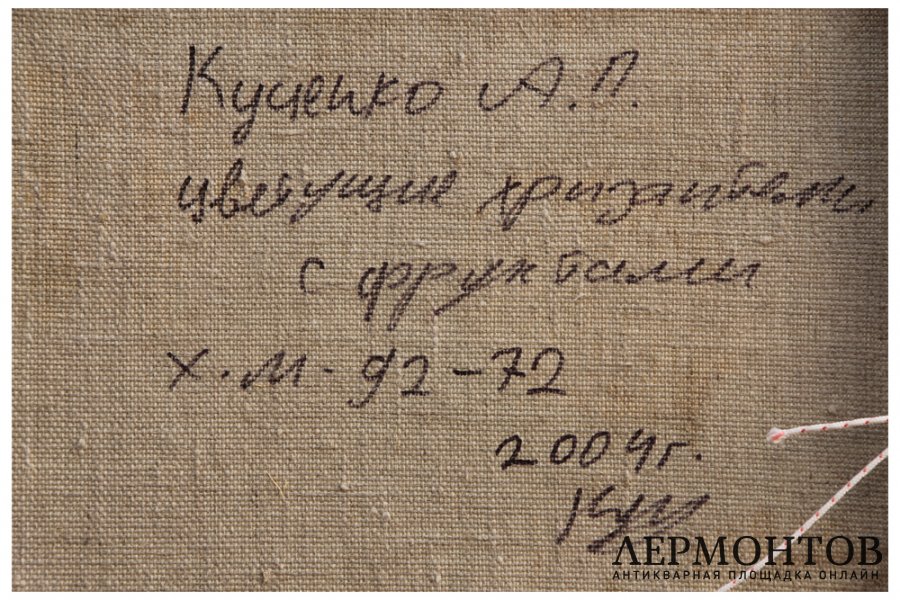 Кученко А.П.
цветущие хризантемы
с фруктами
х.м - 92-72
2004г.
Куч
ЛЕРМОНТОВ
АНТИКВАРНАЯ ПЛОЩАДКА ОНЛАЙН